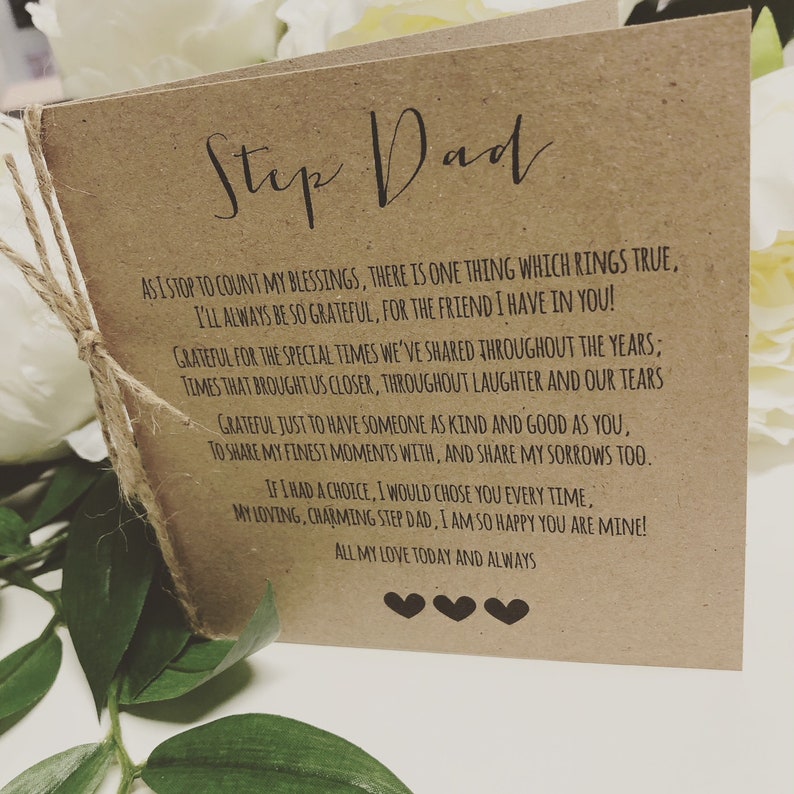 Step Dad
AS I STOP TO COUNT MY BLESSINGS, THERE IS ONE THING WHICH RINGS TRUE,
I'LL ALWAYS BE SO GRATEFUL, FOR THE FRIEND I HAVE IN YOU!
GRATEFUL FOR THE SPECIAL TIMES WE'VE SHARED THROUGHOUT THE YEARS;
TIMES THAT BROUGHT US CLOSER, THROUGHOUT LAUGHTER AND OUR TEARS
GRATEFUL JUST TO HAVE SOMEONE AS KIND AND GOOD AS YOU,
TO SHARE MY FINEST MOMENTS WITH, AND SHARE MY SORROWS TOO.
IF I HAD A CHOICE, I WOULD CHOSE YOU EVERY TIME,
MY LOVING, CHARMING STEP DAD, I AM SO HAPPY YOU ARE MINE!
ALL MY LOVE TODAY AND ALWAYS